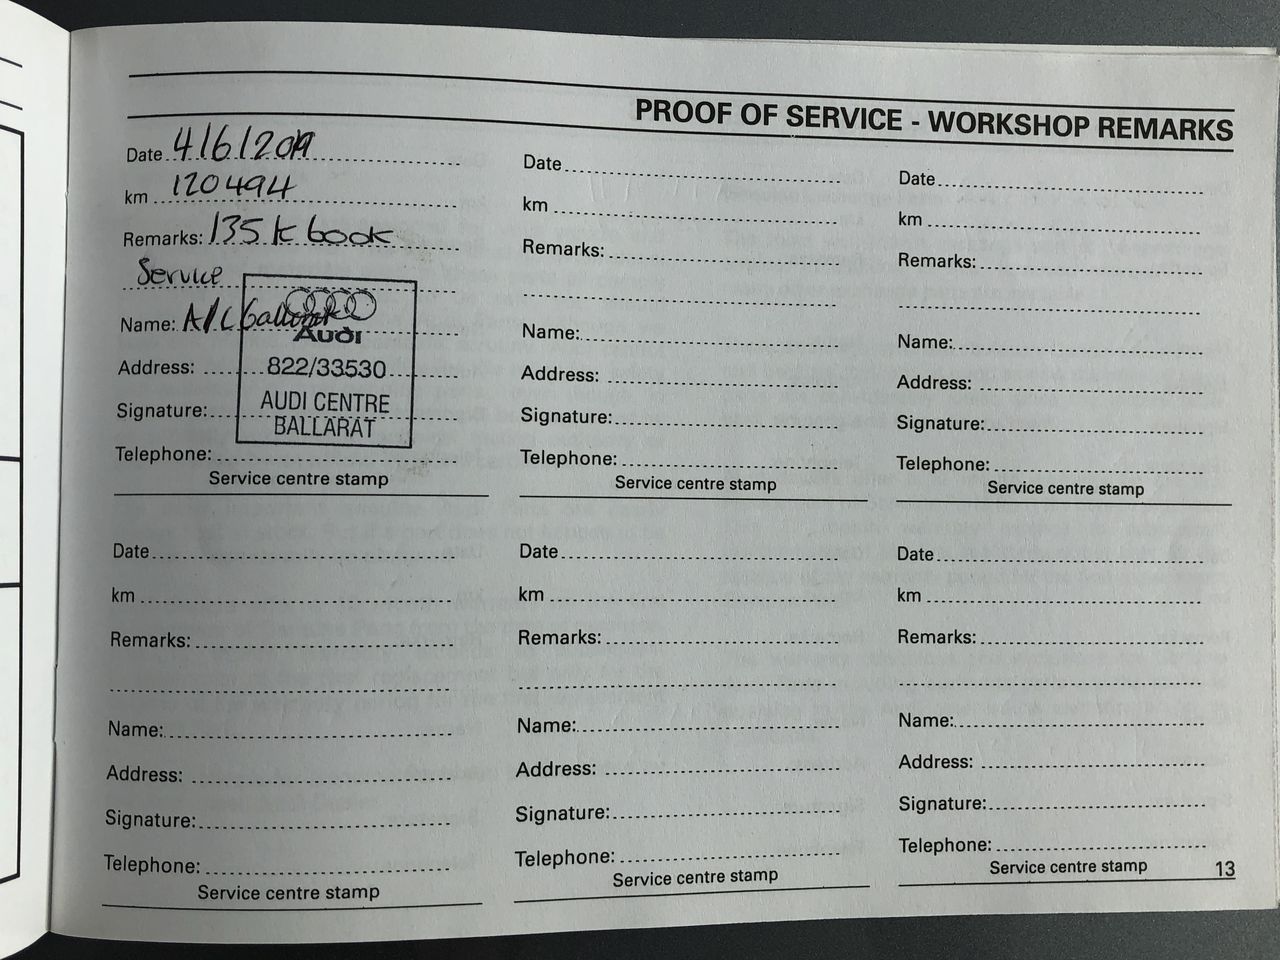 PROOF OF SERVICE - WORKSHOP REMARKS
Date 4/6/2019
km 120494
Remarks: 135 K book
Service
Name: A/C Ballarat
Audi
Address:
822/33530
Signature:
AUDI CENTRE
BALLARAT
Telephone:
Service centre stamp
Date
km
Remarks:
Name:
Address:
Signature:
Telephone:
Service centre stamp
Date
km
Remarks:
Name:
Address:
Signature:
Telephone:
Service centre stamp
Date
km
Remarks:
Name:
Address:
Signature:
Telephone:
Service centre stamp
Date
km
Remarks:
Name:
Address:
Signature:
Telephone:
Service centre stamp
Date
km
Remarks:
Name:
Address:
Signature:
Telephone:
Service centre stamp
13